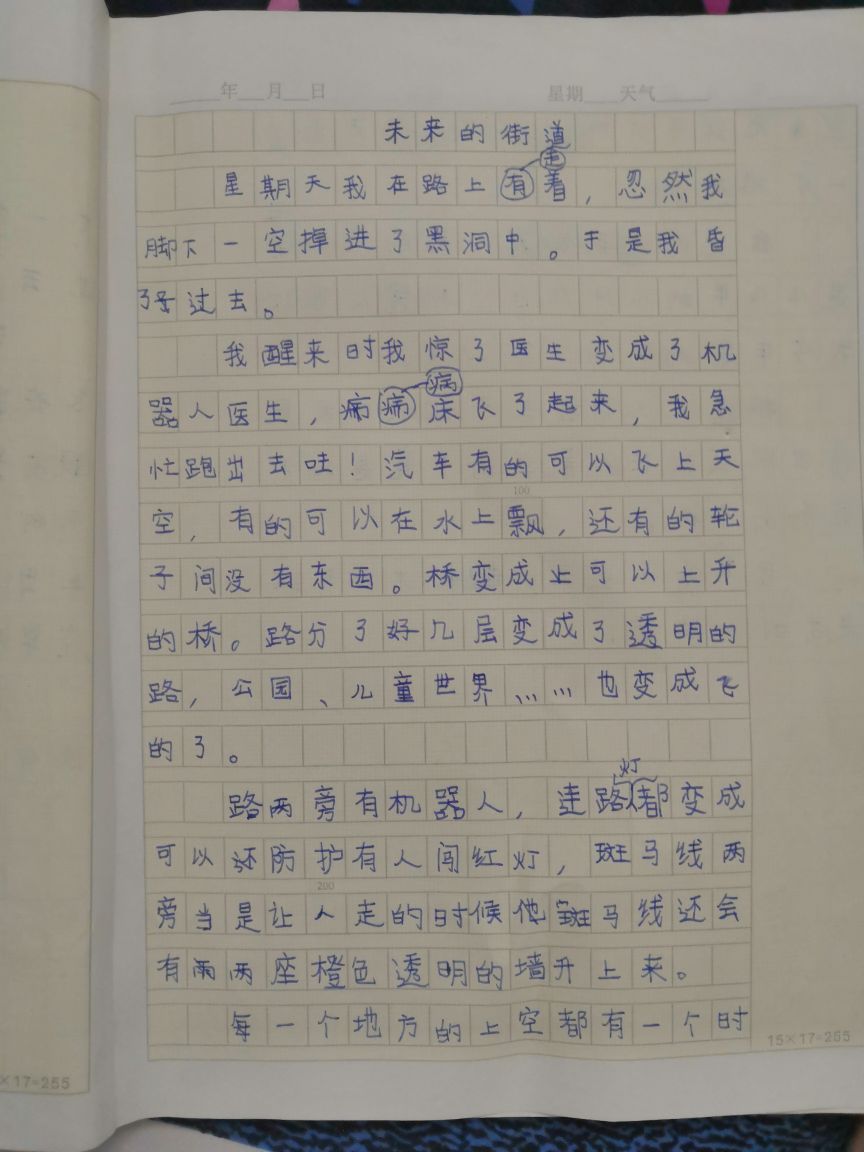 年 月 日 星期 天气
未来的街道
走
星期天我在路上有着，忽然我
脚下一空掉进了黑洞中。于是我昏
了过去。
我醒来时我惊了医生变成了机
病
器人医生，痛痛床飞了起来，我急
忙跑出去哇！汽车有的可以飞上天
100
空，有的可以在水上飘，还有的轮
子间没有东西。桥变成上可以上升
的桥。路分了好几层变成了透明的
路，公园、儿童世界……也变成飞
的了。
灯
路两旁有机器人，连路都变成
可以还防护有人闯红灯，斑马线两
200
旁当是让人走的时候他斑马线还会
有两两座橙色透明的墙升上来。
每一个地方的上空都有一个时
15×17=255
×17=255